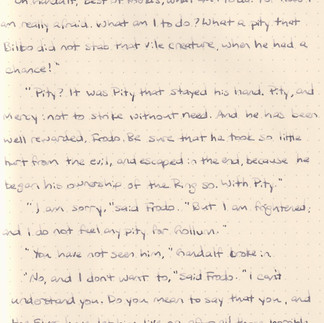 "Oh Gandalf, best of friends, what am I to do? For now I
am really afraid. What am I to do? What a pity that
Bilbo did not stab that vile creature, when he had a
chance!"
"Pity? It was Pity that stayed his hand. Pity, and
Mercy: not to strike without need. And he has been
well rewarded, Frodo. Be sure that he took so little
hurt from the evil, and escaped in the end, because he
began his ownership of the Ring so. With Pity."
"I am sorry," said Frodo. "But I am frightened;
and I do not feel any pity for Gollum."
"You have not seen him," Gandalf broke in.
"No, and I don't want to," said Frodo. "I can't
understand you. Do you mean to say that you, and